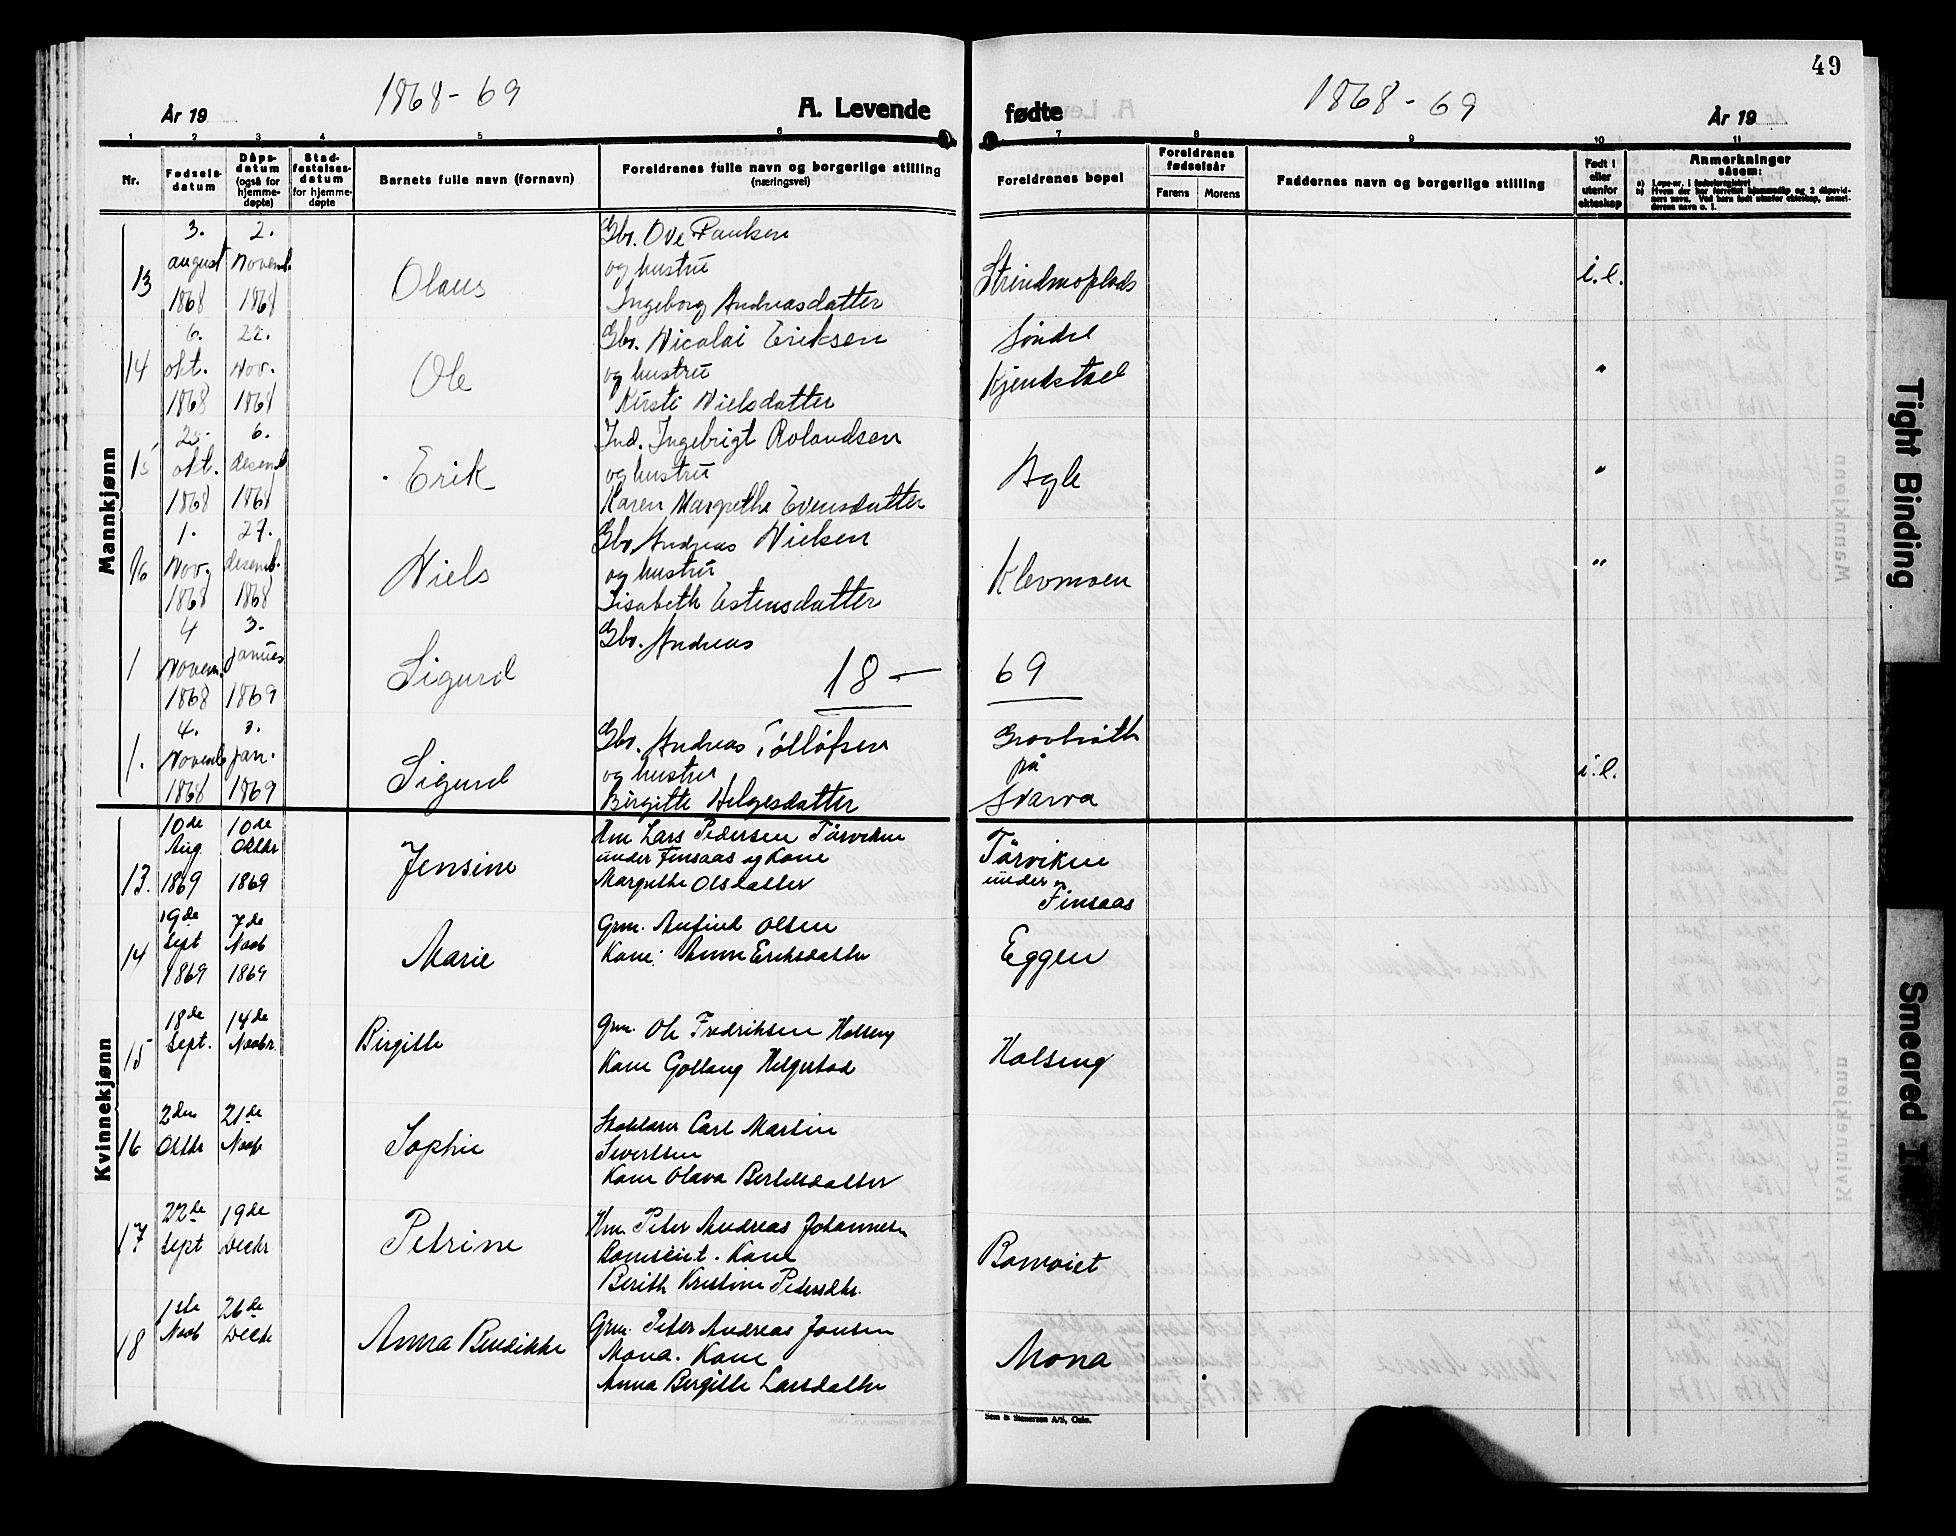 49
1868-69
År 19
A. Levende
fødte
1868-69
År 19
1 2 3 4 5 6 7 8 9 10 11
Nr.
Fødsels-
datum
Dåps-
datum
(også for
hjemme-
døpte)
Stad-
festelses-
datum
for hjemme-
døpte
Barnets fulle navn (fornavn)
Foreldrenes fulle navn og borgerlige stilling
(næringsvei)
Foreldrenes bopel
Foreldrenes
fødselsår
Farens Morens
Faddernes navn og borgerlige stilling
Født i
eller
utenfor
ekteskap
Anmerkninger
såsom:
Mannkjønn
13
3.
august
1868
2.
Novemb.
1868
Olaus
Gbr. Ove Paulsen
og hustru
Ingeborg Andreasdatter
Strindmoplads
i.e.
14
6.
okt.
1868
22.
Nov.
1868
Ole
Gbr. Nicolai Eriksen
og hustru
Kirsti Nielsdatter
Søndre
Kjendstad
"
15
okt.
1868
6.
desemb
1868
Erik
Ind. Ingebrigt Rolandsen
og hustru
Karen Margrethe Evensdatter
Agle
"
16
1.
Nov.
1868
27.
desemb.
1868
Niels
Gbr. Andreas Nielsen
og hustru
Lisabeth Estensdatter
Klevmoen
"
1
4
Novem.
1868
3.
1869
Sigurd
Gbr. Andreas
18 - 69
1.
4.
Novemb
1868
3.
Jan.
1869
Sigurd
Gbr. Andreas Tølløfsen
og hustru
Birgitte Helgesdatter
på
i.e.
Kvinnekjønn
13.
10de
Aug
1869
10de
Oktbr
1869
Jensine
Hm Lars Pedersen Tårviken
under Finsaas og Kone
Margrethe Olsdatter
Tårviken
under
Finsaas
14
19de
Sept
1869
7de
Novb
1869
Marie
Grm. Anfind Olsen
Kone: Anne Eriksdatter
Eggen
15
18de
Sept.
14de
Novbr.
Birgitte
Grm. Ole Fredriksen Holseng
Kone Gollaug Helgestad
Holseng
16
2den
Oktbr
21de
Novb
Sophie
Carl Martin
Sivertsen
Kone Olava Bertelsdatter
17
22de
Sept
19de
Decbr
Petrine
Hm. Peter Andreas Johannesen
Kone
Berith Kristine Pedersdtr.
18
1ste
Novb
26de
Decbr
Anna Bendikke
Grm. Peter Andreas Jonsen
Mona. Kone
Anna Birgitte Larsdatter
Mona
Sem & Stenersen A/S, Oslo.
Tight Binding
Smeared